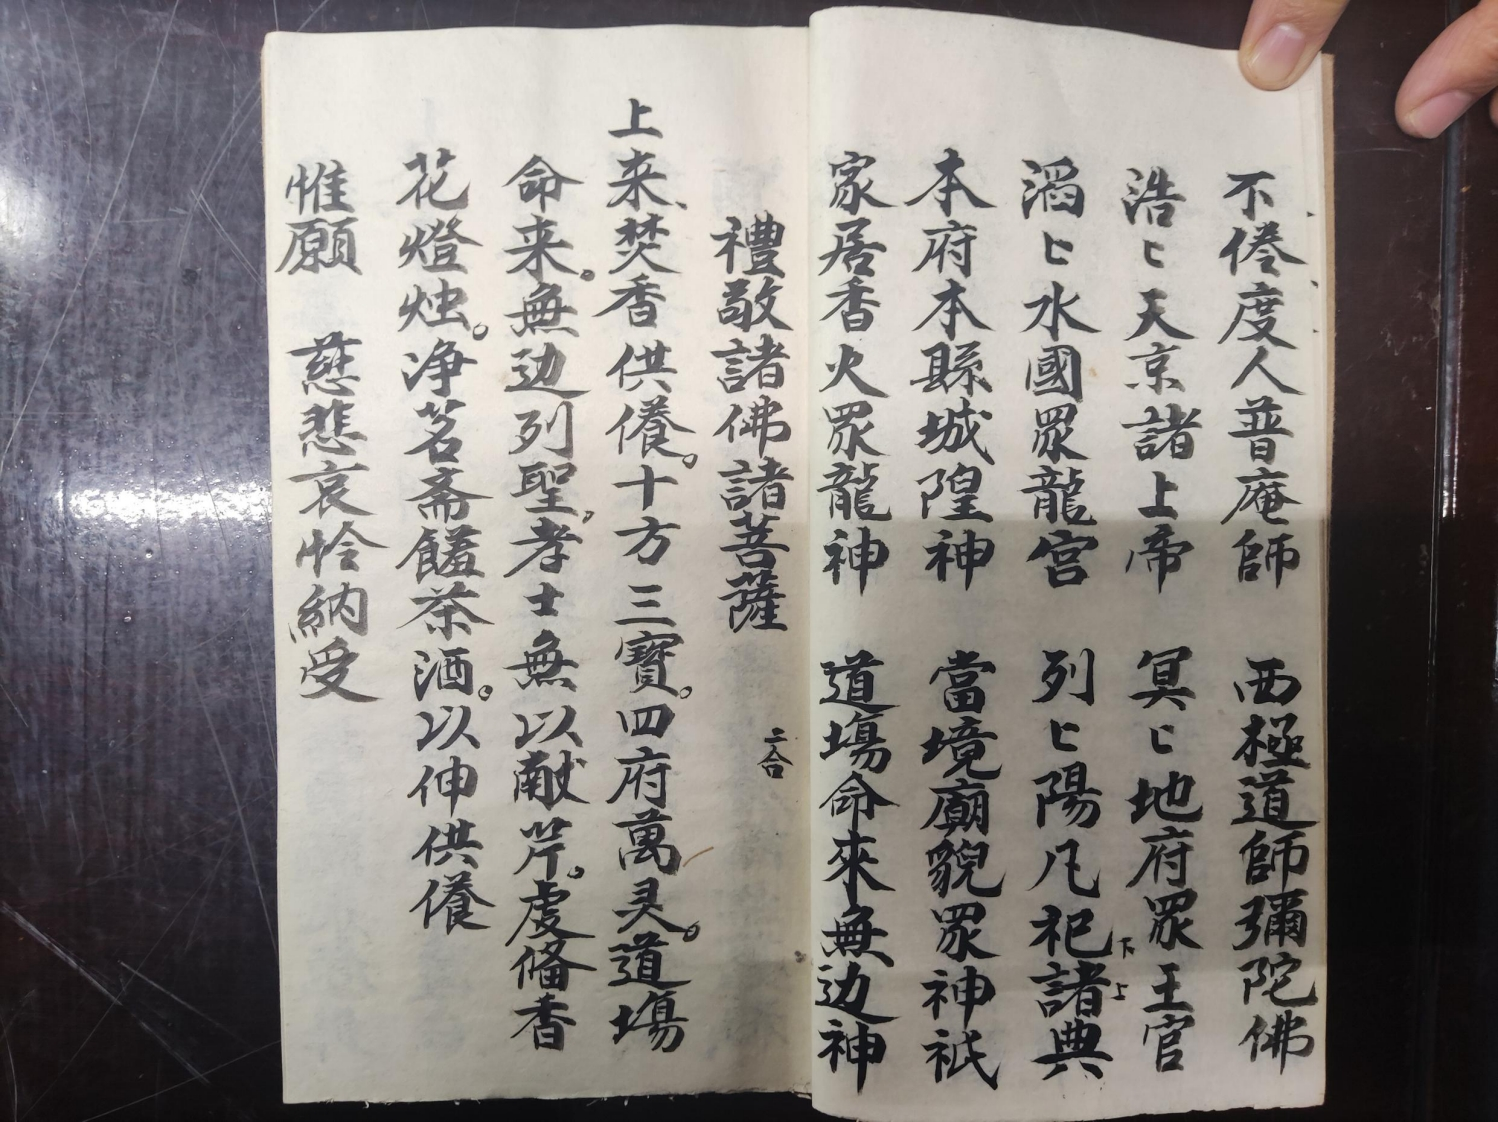 不倦度人普庵師　西極道師彌陀佛
浩匕天京諸上帝　冥匕地府眾王官
滔匕水國眾龍宮　列匕陽凡祀諸典
下上
本府本縣城隍神　當境廟貌眾神祇
家居香火眾龍神　道塲命來無边神
禮敬諸佛諸菩薩　二合
上来、焚香供養。十方三寶。四府萬灵。道塲
命来。無边列聖，孝士無以献芹。虔俻香
花燈烛。净茗斋饈茶酒。以伸供養
惟願　慈悲哀怜納受